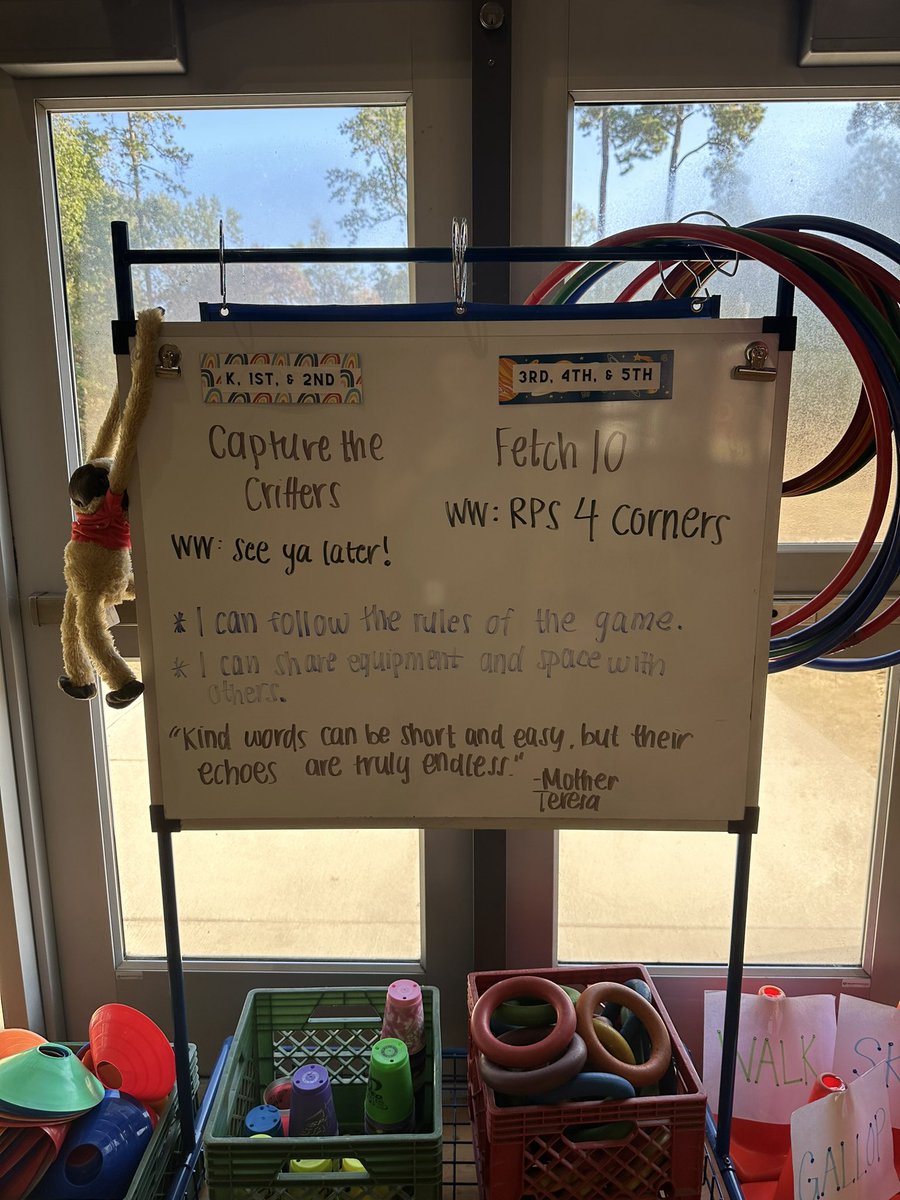 K, 1ST, & 2ND
Capture the
Critters
WW: see ya later!
3RD, 4TH, & 5TH
Fetch 10
WW: RPS 4 corners
* I can follow the rules of the game.
* I can share equipment and space with
others.
"Kind words can be short and easy, but their
echoes are truly endless."
-Mother
Teresa
WALK
SK
GALLOP